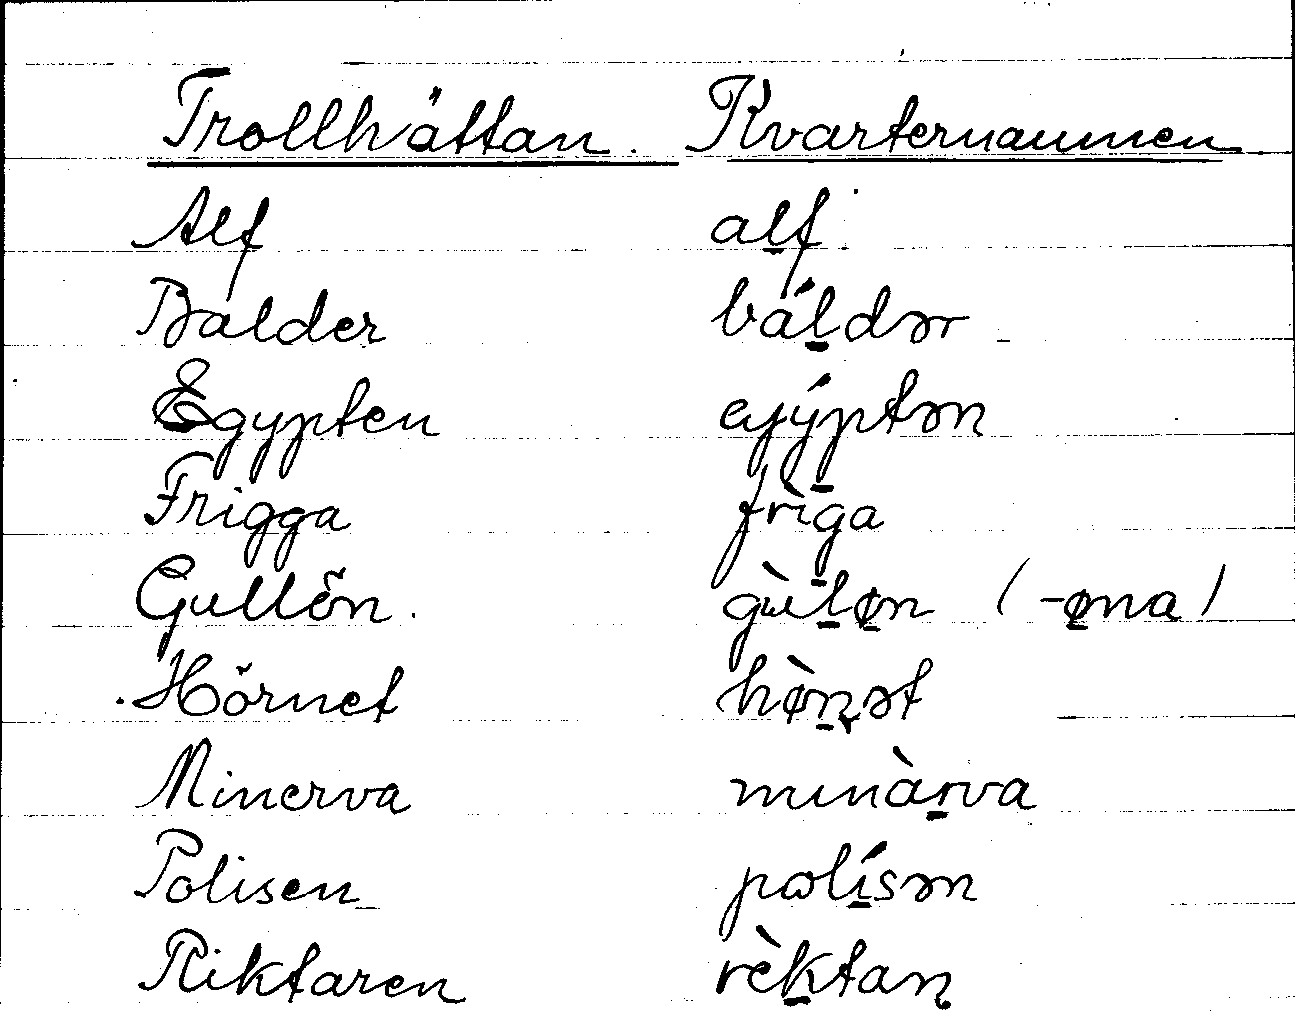 Trollhättan. Kvarternamnen
Alf al̲f
Balder bál̲dər
Egypten eɟýp̲tən
Frigga frìg̲a
Gullön. gùl̲ø̲n (-ø̲na)
Hörnet hø̀ɳ̲ət
Minerva mɩnàr̲va
Polisen pɷlí̲sən
Riktaren rèk̲taɳ